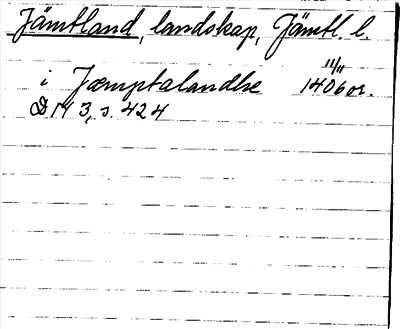 Jämtland, landskap, Jämtl. l.
11/11
i Jæmptalandhe 1406 or.
DN 3, s. 424